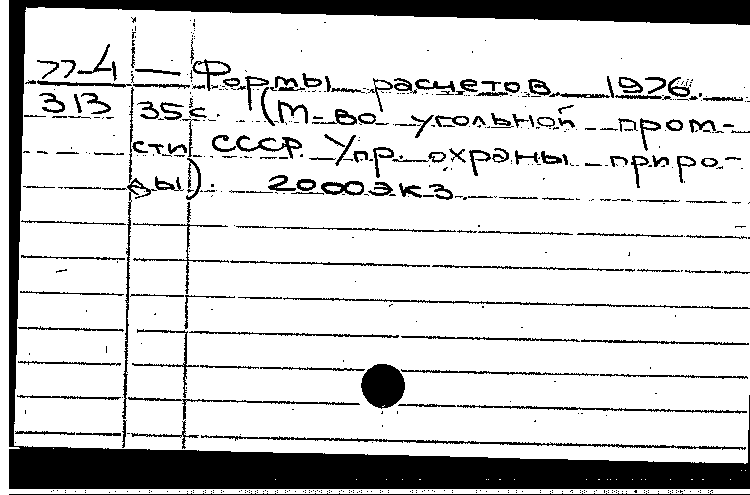 77-4 — Формы расчетов 1976.
313 35с. (М-во угольной пром-
сти СССР. Упр. охраны приро-
ды). 2000экз.